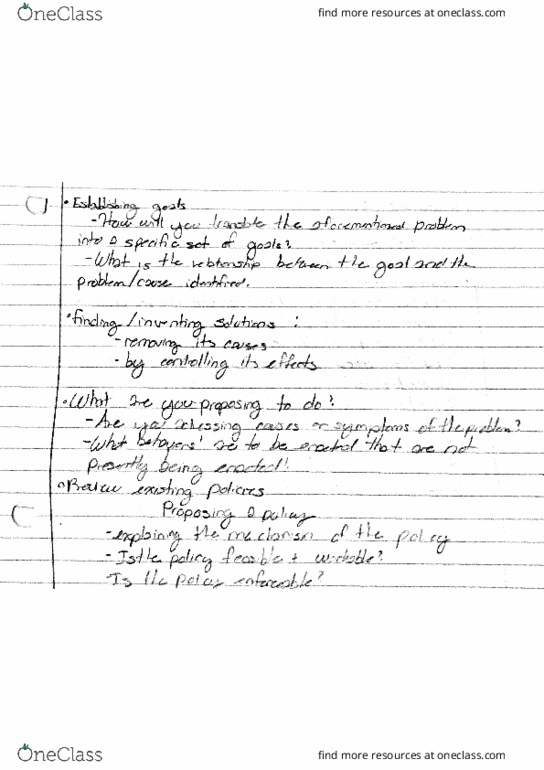 OneClass
find more resources at oneclass.com
• Establishing goals
- How will you translate the aforementioned problem
into a specific set of goals?
- What is the relationship between the goal and the
problem/cause identified.
• Finding/inventing solutions :
- removing its causes
- by controlling its effects
• What are you proposing to do?
- Are you adressing causes or symptoms of the problem?
- What are to be enacted that are not
presently being enacted?
Review existing policies
Proposing a policy
- explaining the mechanism of the policy
- Is the policy feasible + workable?
- Is the policy enforceable?
OneClass
find more resources at oneclass.com